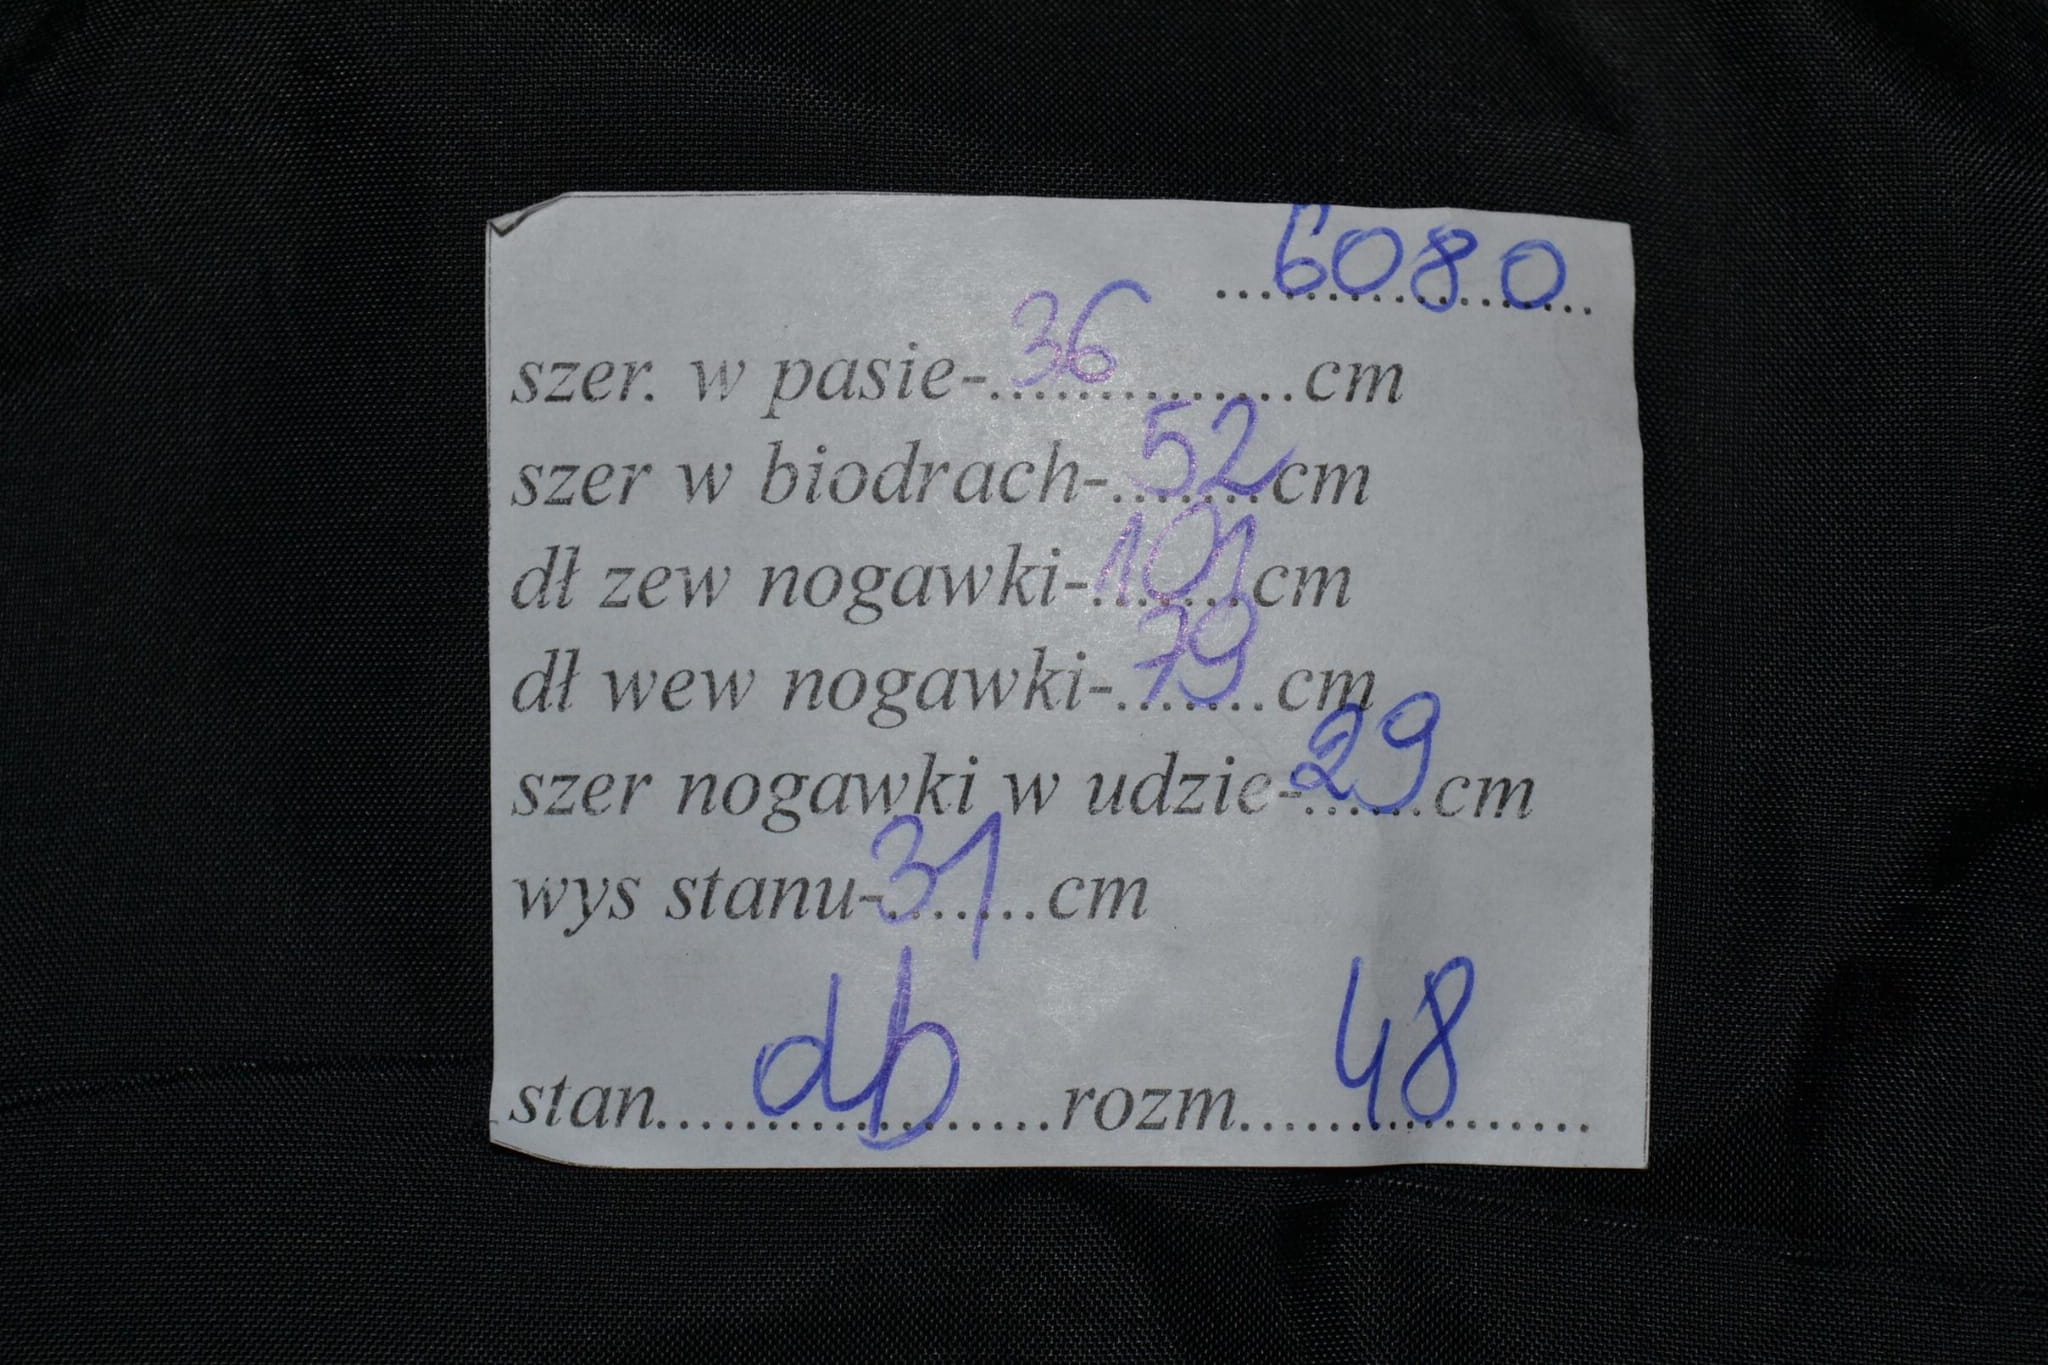 6080
szer. w pasie-36cm
szer w biodrach-52cm
dł zew nogawki-101cm
dł wew nogawki-79cm
szer nogawki w udzie-29cm
wys stanu-31cm
stan....db....rozm....48....